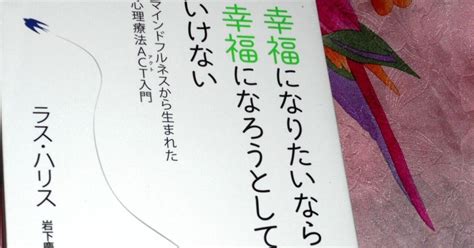 幸福になりたいなら
幸福になろうとして
いけない
マインドフルネスから生まれた
心理療法ACT入門
アクト
ラス・ハリス
岩下慶